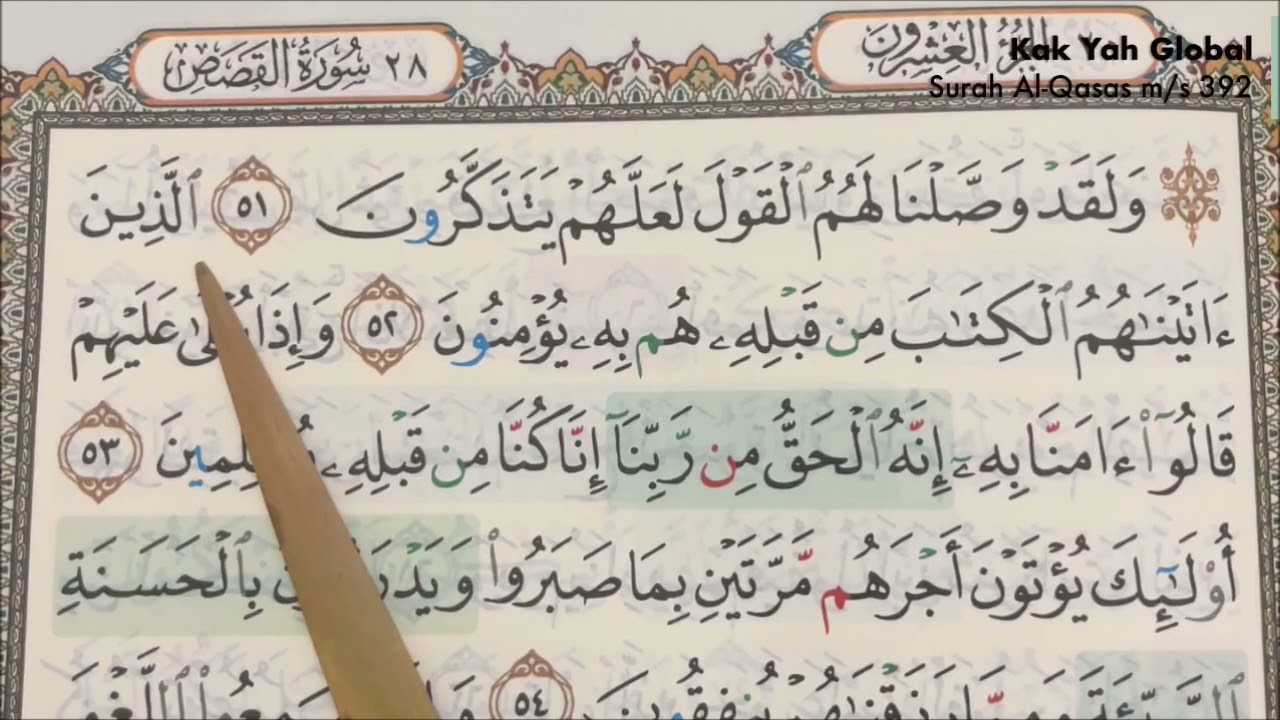 ٢٨ سُورَةُ القَصَصِ
الجُزْءُ العِشْرُونَ
Kak Yah Global
Surah Al-Qasas m/s 392
وَلَقَدْ وَصَّلْنَا لَهُمُ ٱلْقَوْلَ لَعَلَّهُمْ يَتَذَكَّرُونَ ٥١ ٱلَّذِينَ
ءَاتَيْنَـٰهُمُ ٱلْكِتَـٰبَ مِن قَبْلِهِۦ هُم بِهِۦ يُؤْمِنُونَ ٥٢ وَإِذَا عَلَيْهِمْ
قَالُوٓا۟ ءَامَنَّا بِهِۦٓ إِنَّهُ ٱلْحَقُّ مِن رَّبِّنَآ إِنَّا كُنَّا مِن قَبْلِهِۦ مُسْلِمِينَ ٥٣
أُو۟لَـٰٓئِكَ يُؤْتَوْنَ أَجْرَهُم مَّرَّتَيْنِ بِمَا صَبَرُوا۟ وَيَدْرَءُونَ بِٱلْحَسَنَةِ
ٱلسَّيِّئَةَ وَمِمَّا رَزَقْنَـٰهُمْ يُنفِقُونَ ٥٤ ٱللَّغْوَ